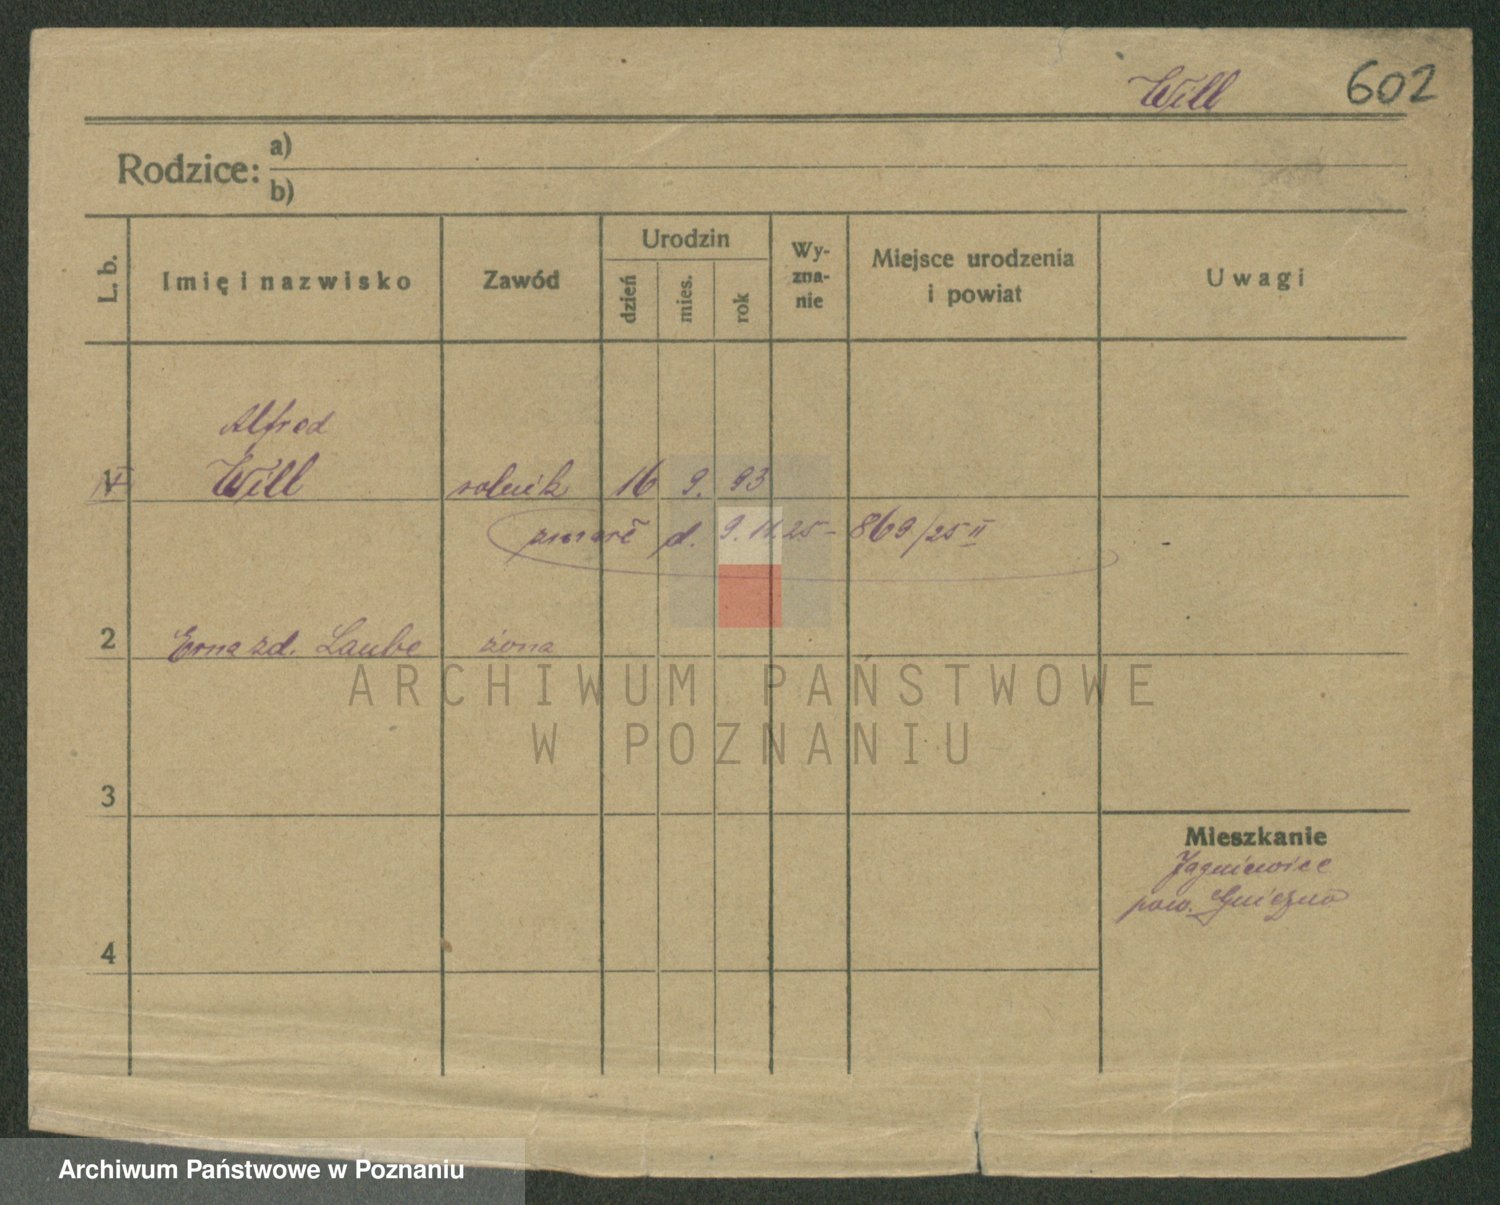 Will 602
Rodzice: a)
b)
L. b. Imię i nazwisko Zawód Urodzin dzień mies. rok Wy-zna-nie Miejsce urodzenia i powiat Uwagi
Alfred
1 Will rolnik 16 9. 93
zmarł d. 9. 11. 25 - 869/25 II
2 Erna zd. Laube żona
ARCHIWUM PAŃSTWOWE
W POZNANIU
3
Mieszkanie
Jagniewice
pow. Gniezno
4
Archiwum Państwowe w Poznaniu